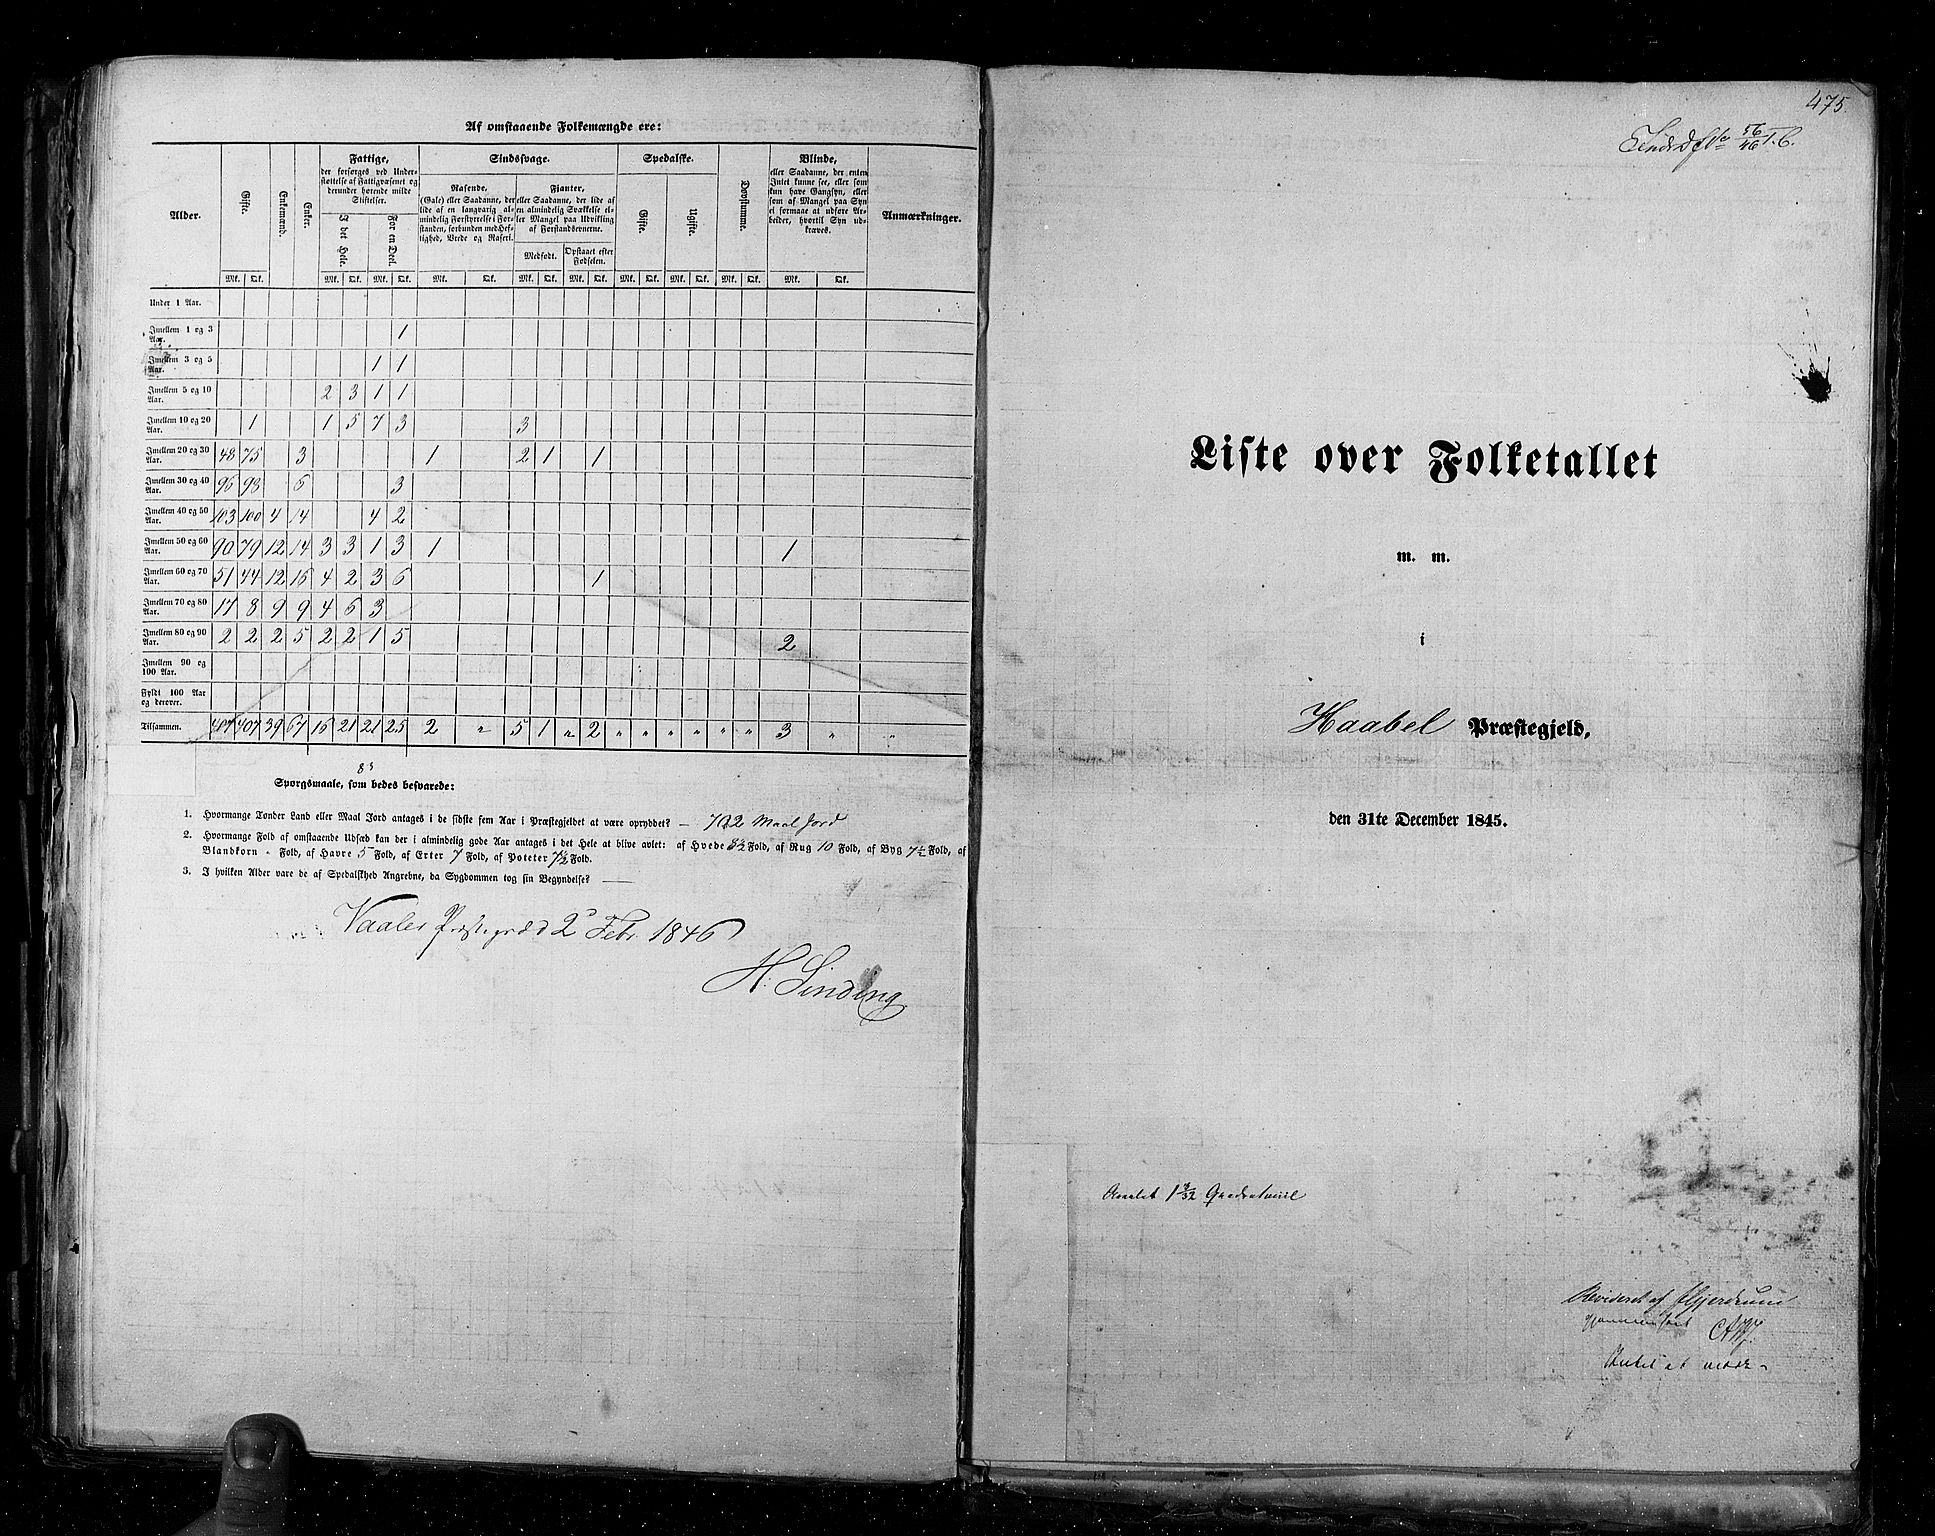 Af omstaaende Folkemængde ere:
Alder.
Gifte.
Enkemænd.
Enker.
Fattige,
der forsørges ved Under-
støttelse af Fattigvæsenet og
derunder hørende milde
Stiftelser.
I det Hele.
For en Deel.
Sindssvage.
Rasende,
(Gale) eller Saadanne, der
lide af en langvarig al-
mindelig Forstyrrelse i For-
standen, forbunden med Hef-
tighed, Vrede og Raseri.
Fianter,
eller Saadanne, der lide af
en almindelig Svækkelse el-
ler Mangel paa Udvikling
af Forstandsevnerne.
Medfødt.
Opstaaet efter
Fødselen.
Spedalske.
Gifte.
Ugifte.
Døvstumme.
Blinde,
eller Saadanne, der enten
Intet kunne see, eller som
kun have Gangsyn, eller
som af Mangel paa Syn
ei formaae at udføre Ar-
beider, hvortil Syn ud-
kræves.
Anmærkninger.
Mk. Qk. Mk. Qk. Mk. Qk. Mk. Qk. Mk. Qk. Mk. Qk. Mk. Qk. Mk. Qk. Mk. Qk. Mk. Qk.
Under 1 Aar.
Imellem 1 og 3 Aar. 1
Imellem 3 og 5 Aar. 1 1
Imellem 5 og 10 Aar. 2 3 1 1
Imellem 10 og 20 Aar. 1 1 5 7 3 3
Imellem 20 og 30 Aar. 48 75 3 1 2 1 1
Imellem 30 og 40 Aar. 96 98 6 3
Imellem 40 og 50 Aar. 103 100 4 14 4 2
Imellem 50 og 60 Aar. 90 79 12 14 3 3 1 3 1 1
Imellem 60 og 70 Aar. 51 44 12 16 4 2 3 6 1
Imellem 70 og 80 Aar. 17 8 9 9 4 6 3
Imellem 80 og 90 Aar. 2 2 2 5 2 2 1 5 2
Imellem 90 og 100 Aar.
Fyldt 100 Aar og derover.
Tilsammen. 407 407 39 67 16 21 21 25 2 „ 5 1 „ 2 „ „ „ „ „ „ 3 „ „
83
Spørgsmaale, som bedes besvarede:
1. Hvormange Tønder Land eller Maal Jord antages i de sidste fem Aar i Præstegjeldet at være opryddet? — 702 Maal Jord
2. Hvormange Fold af omstaaende Udsæd kan der i almindelig gode Aar antages i det Hele at blive avlet: af Hvede 8½ Fold, af Rug 10 Fold, af Byg 7½ Fold, af
Blandkorn - Fold, af Havre 5 Fold, af Erter 7 Fold, af Poteter 7½ Fold.
3. I hvilken Alder vare de af Spedalskhed Angrebne, da Sygdommen tog sin Begyndelse? —
Vaaler Præstegaard 2 Febr. 1846
H. Sinding
475.
Liste over Folketallet
m. m.
i
Haabøl Præstegjeld,
den 31te December 1845.
Arealet 1 9/32 Quadratmiil
Revideret af Gjerdrum
gjennemseet